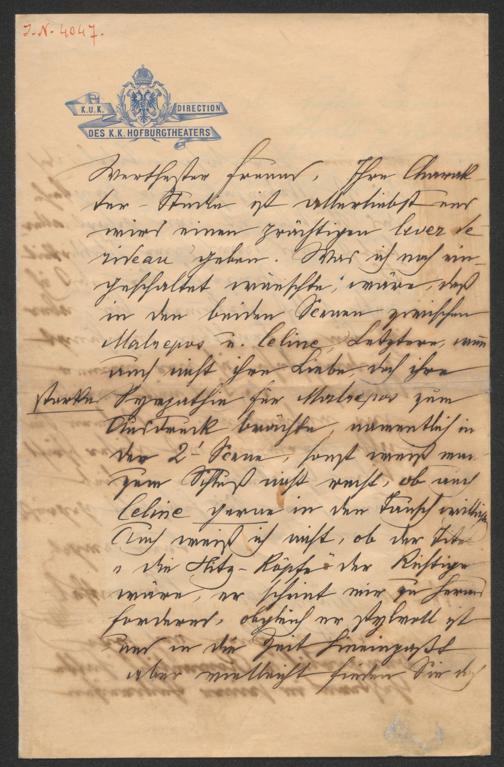 J.N. 4047.
K.U.K. DIRECTION
DES K.K. HOFBURGTHEATERS
Werthester Freund, Ihre Charak-
ter-Studie ist allerliebst und
wird einen prächtigen lever de
rideau geben. Was ich noch ein-
geschaltet wünschte, wäre, daß
in den beiden Scenen zwischen
Malrepos u. Celine, Letztere, wenn
auch nicht ihre Liebe doch ihre
starke Sympathie für Malrepos zum
Ausdruck brächte, namentlich in
der 2t Scene, sonst weiß man
zum Schluß nicht recht, ob auch
Celine gerne in den Tausch
Auch weiß ich nicht, ob der Titel
"die Hitz-Köpfe" der Richtige
wäre, er scheint mir zu heraus
fordernd, obgleich er stylvoll ist
und in die Zeit hineinpaßt
aber vielleicht finden Sie doch